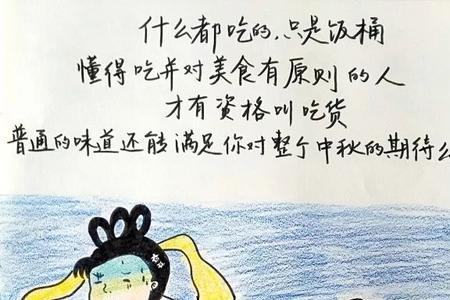 什么都吃的,只是饭桶
懂得吃并对美食有原则的人
才有资格叫吃货
普通的味道还能满足你对整个中秋的期待么